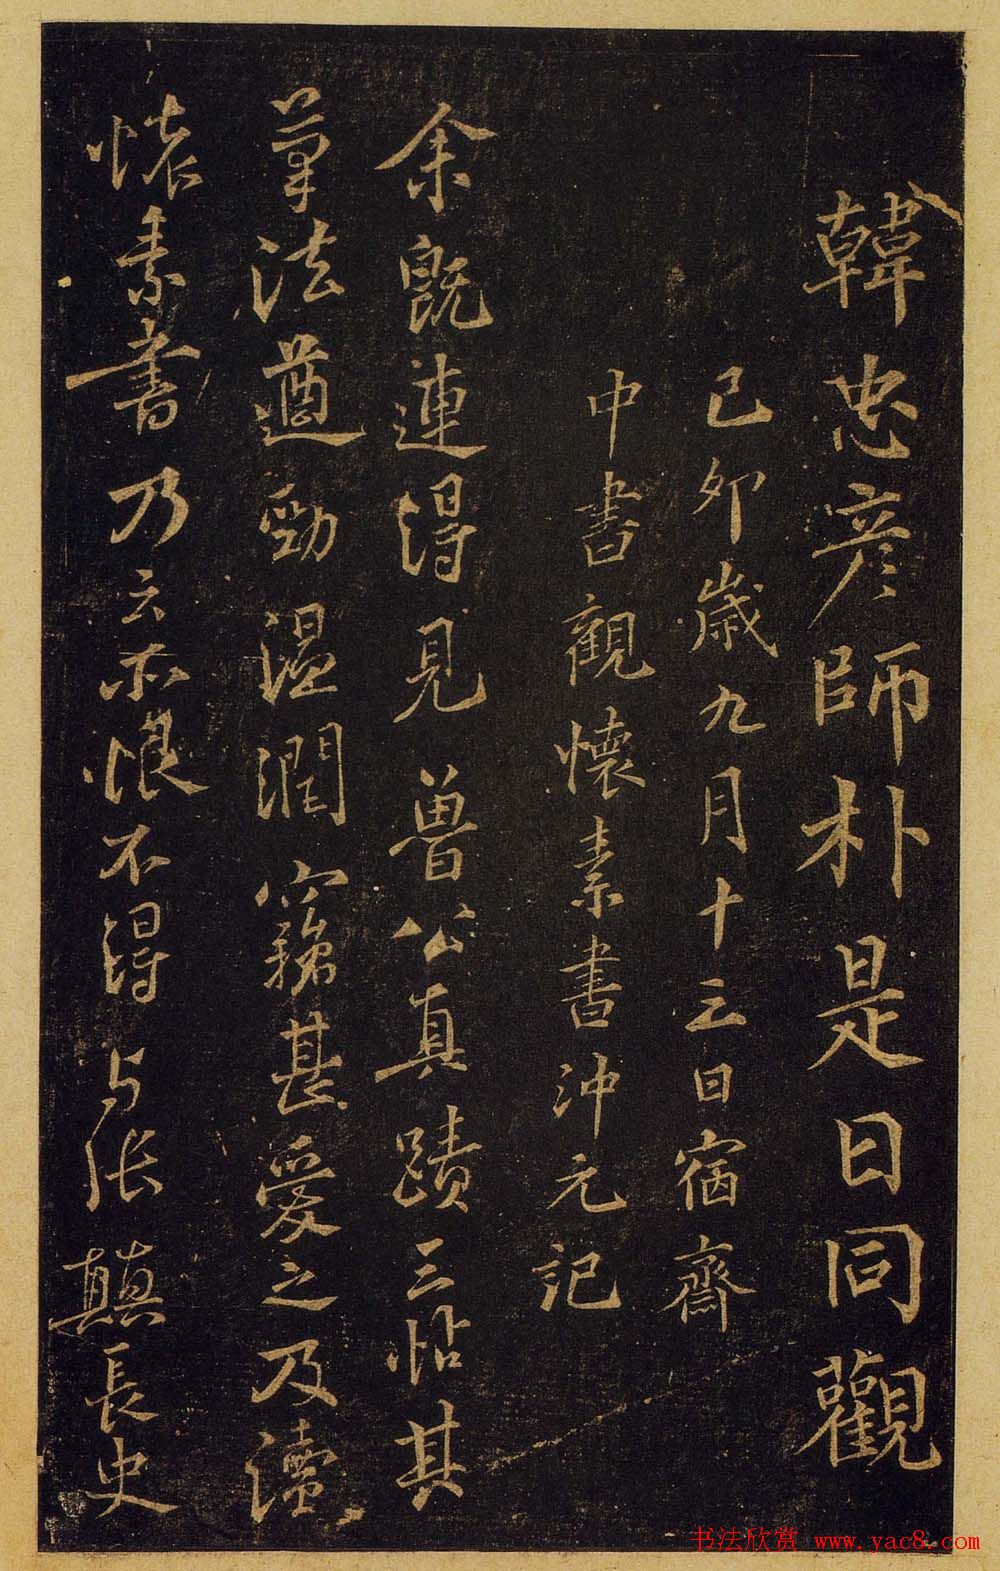 韓忠彦師朴是日同觀
己卯歲九月十三日宿齋
中書觀懷素書沖元記
余既連得見魯公真蹟三帖其
筆法遒勁溫潤竊甚愛之及讀
懐素書乃云亦恨不得与張顛長史
书法欣赏 www.yac8.com